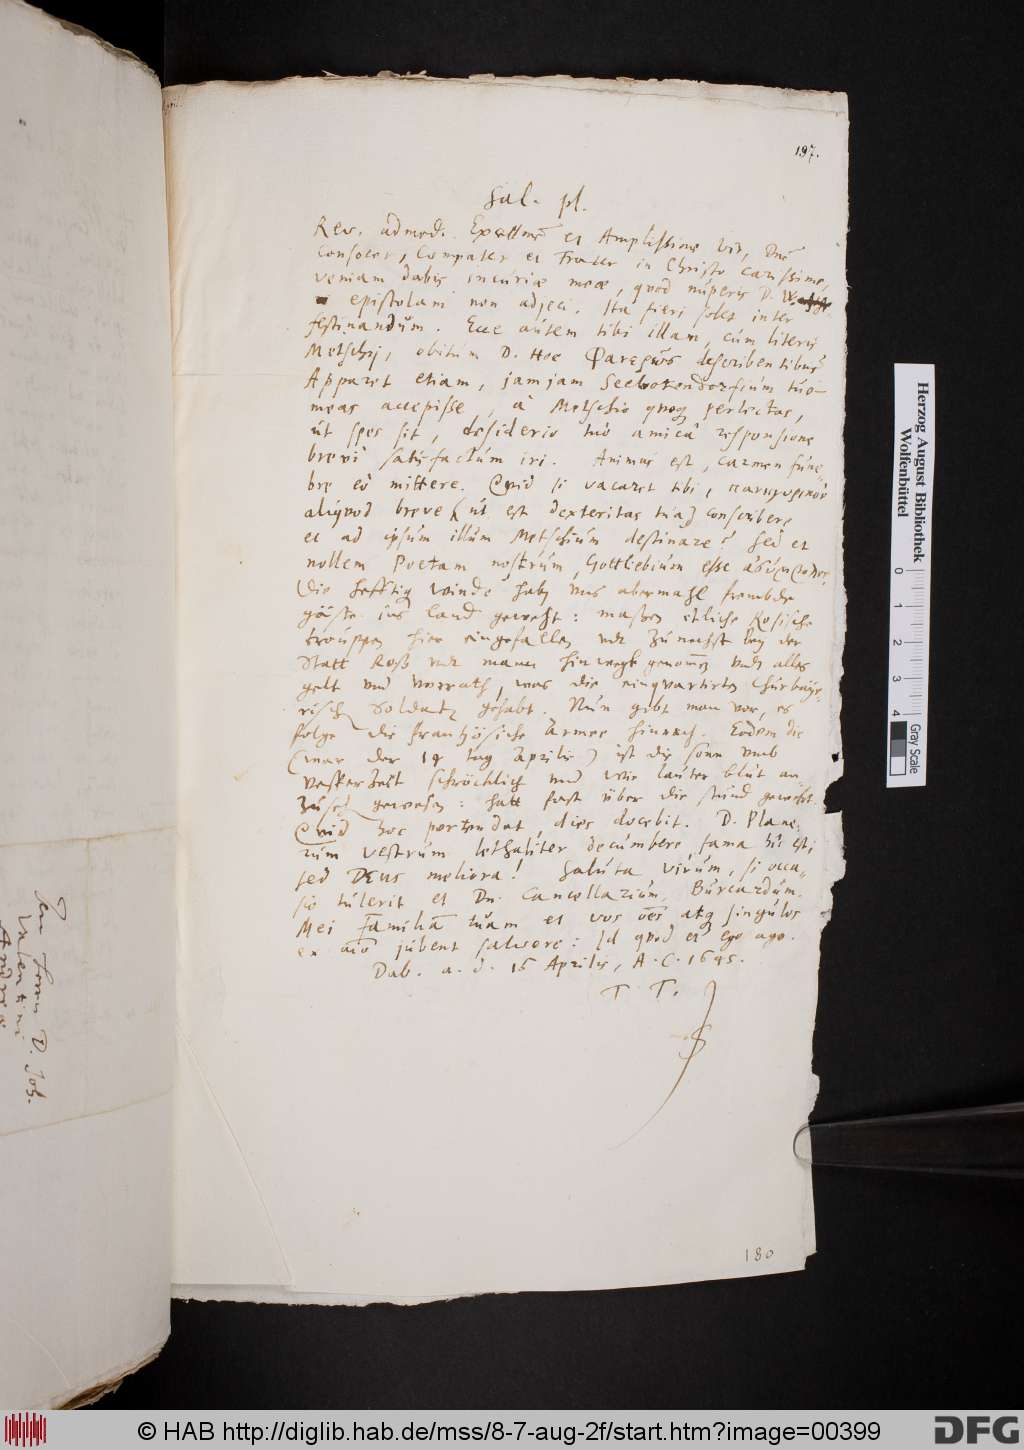 197.
Sal. pl.
Rev. admod. Excellme et Amplissime Vir, Dne
Consocer, Compater et Frater in Christo carissime,
veniam dabis incuriæ meæ, quod nuperis D. W.
epistolam non adjeci. Ita fieri solet inter
festinandum. Ecce autem tibi illam, cum literis
Metschij, obitum D. Hoe describentibus
Apparet etiam, jamjam Seckotendorfium tuo
meas accepisse, à Metschio quoq perlectas,
ut spes sit, desiderio tuo amicâ responsione
brevi satisfactum iri. Animus est, carmen fune-
bre eò mittere. Quid si vacaret tibi, πανηγυρικὸν
aliquod breve (ut est dexteritas tua) conscribere
et ad ipsum illum Metschium destinare? Sed et
nollem Poetam nostrum, Gottliebium esse
Die hefftig winde haben uns abermahl frembde
gäste ins land geweht: maßen etliche Rosische
trouppen hier eingefallen und zunechst bey der
Statt Roß und mann hinwegk genommen und alles
gelt und vorrath, was die einquartirten Churbaye-
risch Soldaten gehabt. Nun gibt man vor, es
folge die frantzösische Armee hinnach. Eodem die
(war der 14 tag Aprilis) ist die sonn umb
vesperzeit schröcklich und wie lauter blut an-
zusehen gewesen: hatt fast über die stund gewehrt.
Quid hoc portendat, dies docebit. D. Plane-
rum vestrum lethaliter decumbere, fama hic est;
sed DEUS meliora! Saluta virum, si occa-
sio tulerit et Dn. Cancellarium, Burcardum.
Mei Familiam tuam et vos oes atq singulos
ex aio jubent salvere: Id quod et ego ago.
Dab. a. d. 16 Aprilis, A. C. 1645.
T. T.
S
180
Dem Herrn D. Joh.
Valentini
Andreæ
Herzog August Bibliothek
Wolfenbüttel
0 1 2 3 4
Gray Scale
© HAB http://diglib.hab.de/mss/8-7-aug-2f/start.htm?image=00399
DFG